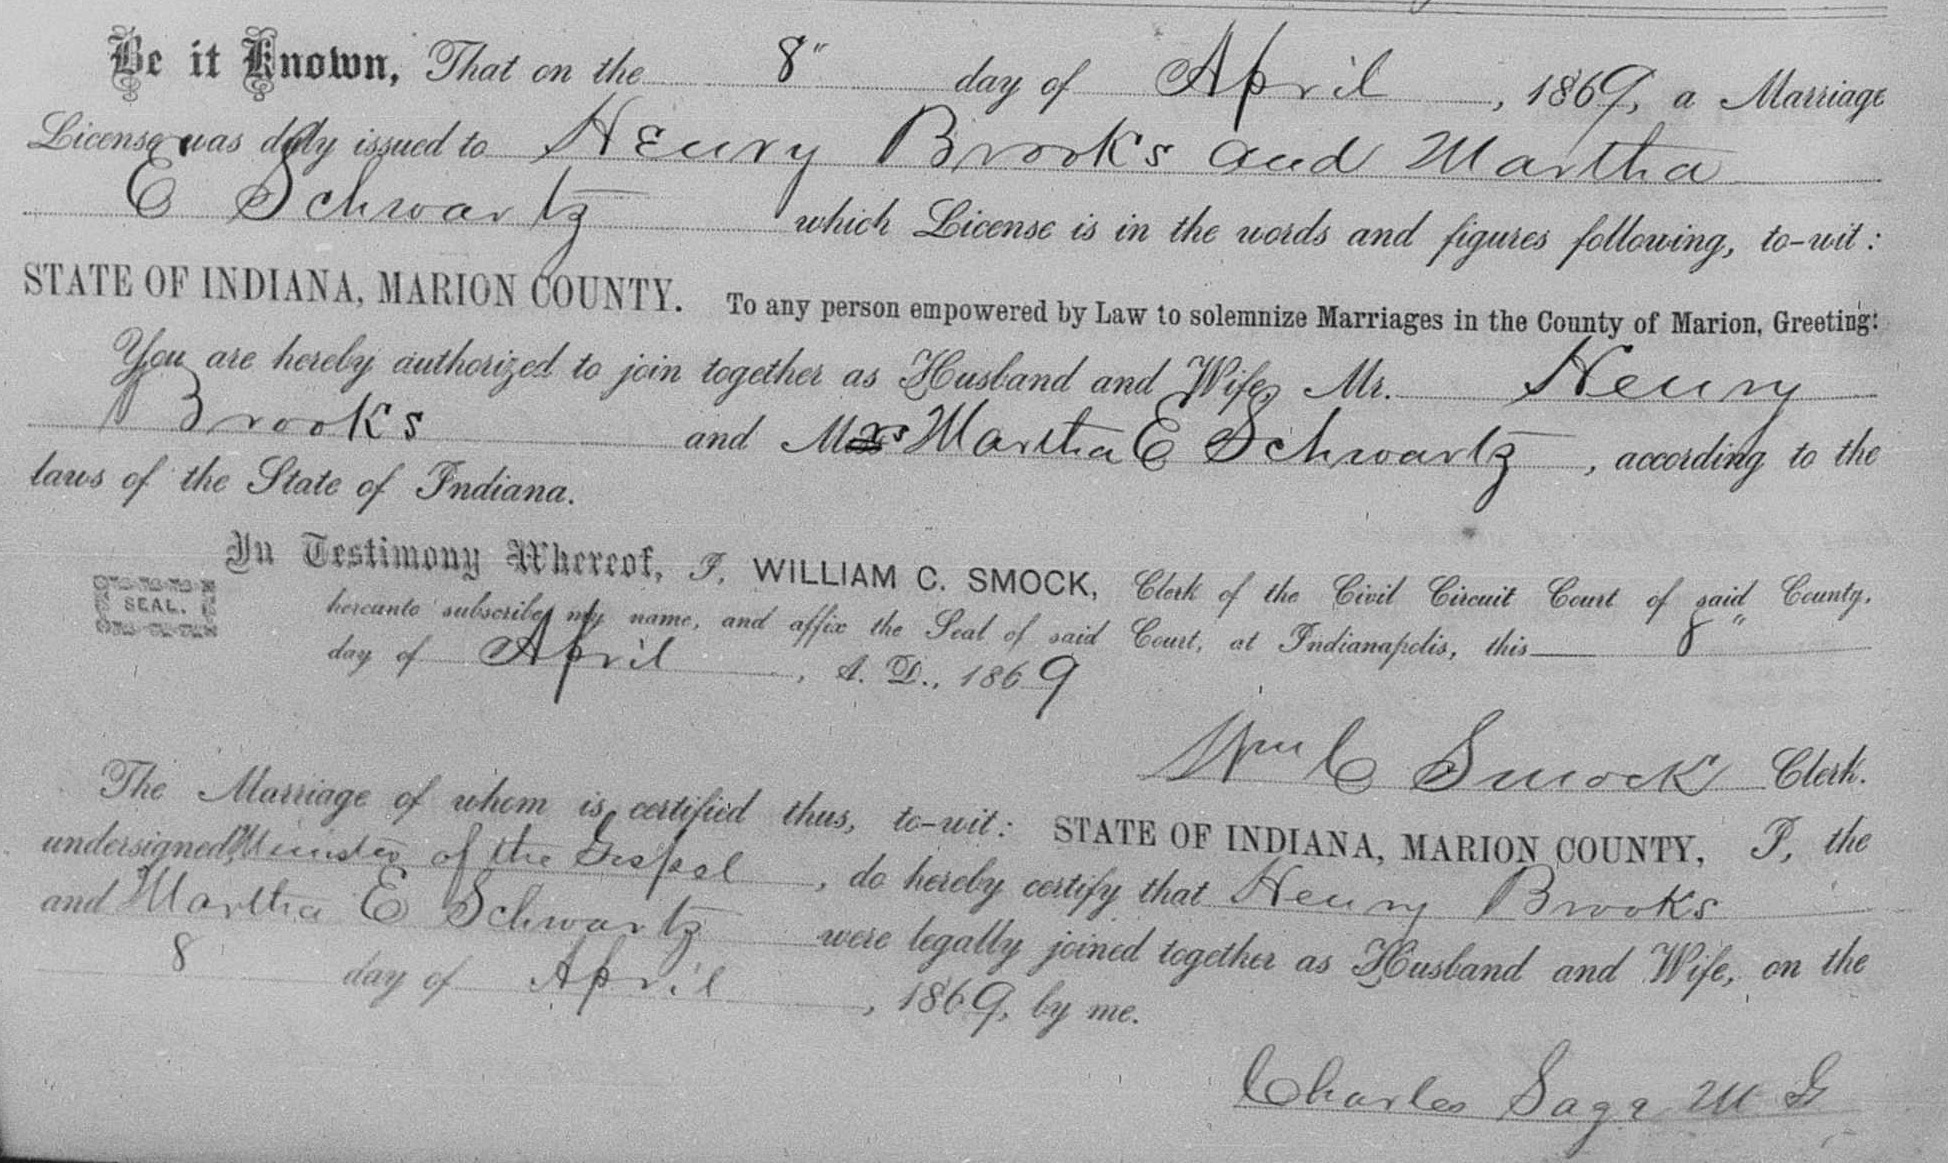 Be it Known, That on the 8" day of April, 1869, a Marriage
License was duly issued to Henry Brooks and Martha
E Schwartz which License is in the words and figures following, to-wit:
STATE OF INDIANA, MARION COUNTY. To any person empowered by Law to solemnize Marriages in the County of Marion, Greeting:
You are hereby authorized to join together as Husband and Wife, Mr. Henry
Brooks and Mrs Martha E Schwartz, according to the
laws of the State of Indiana.
In Testimony Whereof, I, WILLIAM C. SMOCK, Clerk of the Civil Circuit Court of said County,
SEAL.
hereunto subscribe my name, and affix the Seal of said Court, at Indianapolis, this 8"
day of April, A. D., 1869
Wm C Smock Clerk.
The Marriage of whom is certified thus, to-wit: STATE OF INDIANA, MARION COUNTY, I, the
undersigned, Minister of the Gospel, do hereby certify that Henry Brooks
and Martha E Schwartz were legally joined together as Husband and Wife, on the
8 day of April, 1869, by me.
Charles Sage M G